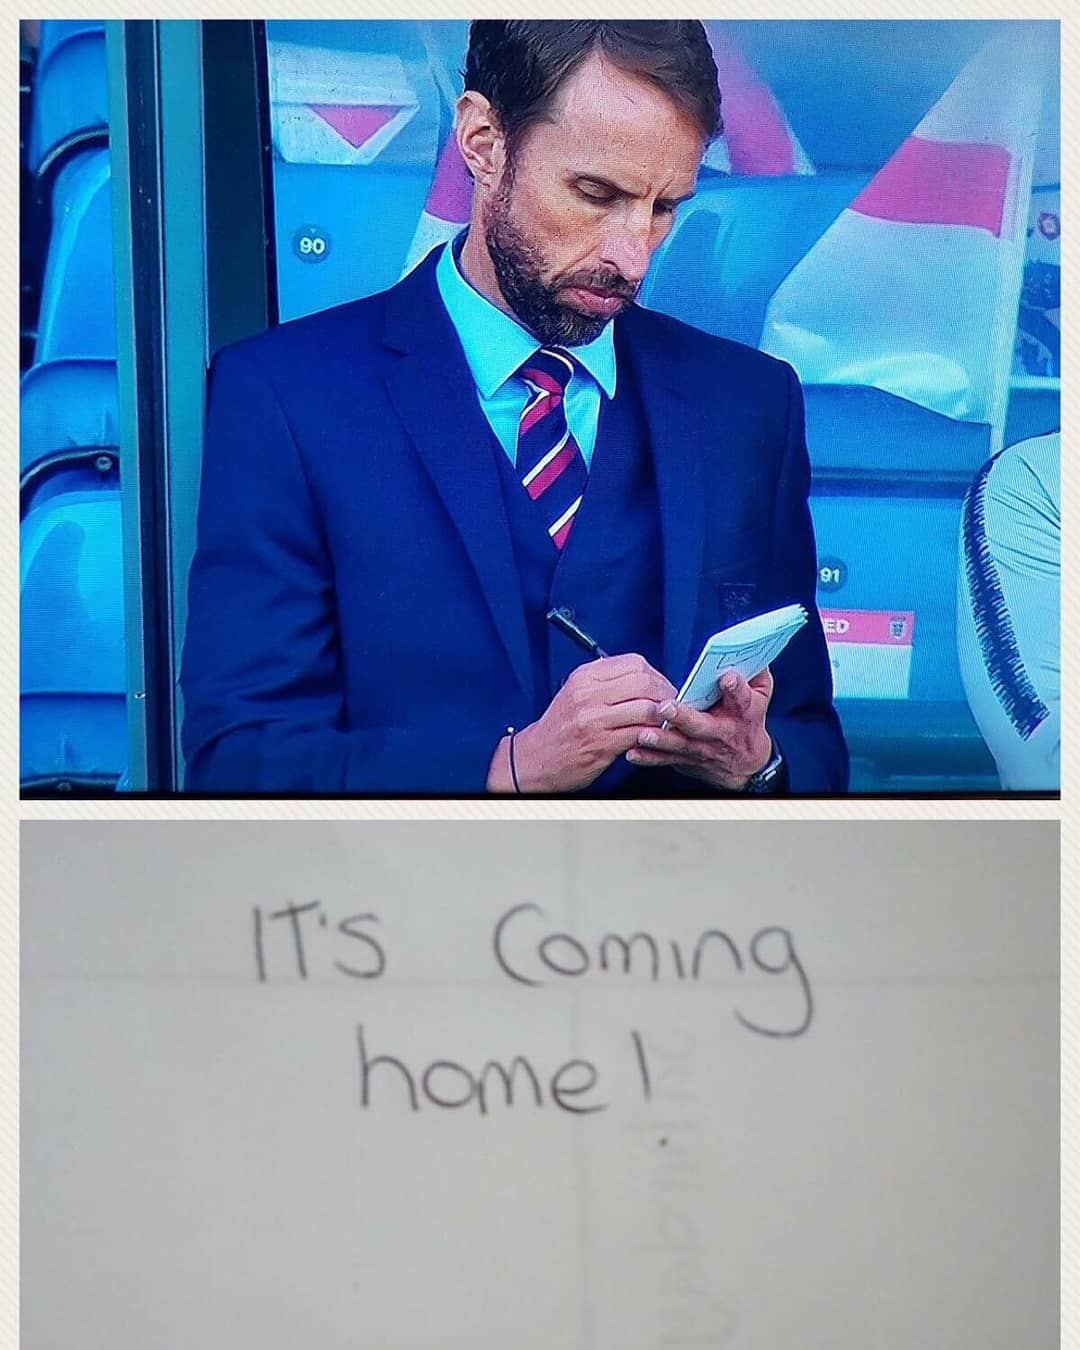 90
91
ED
IT'S Coming
home!